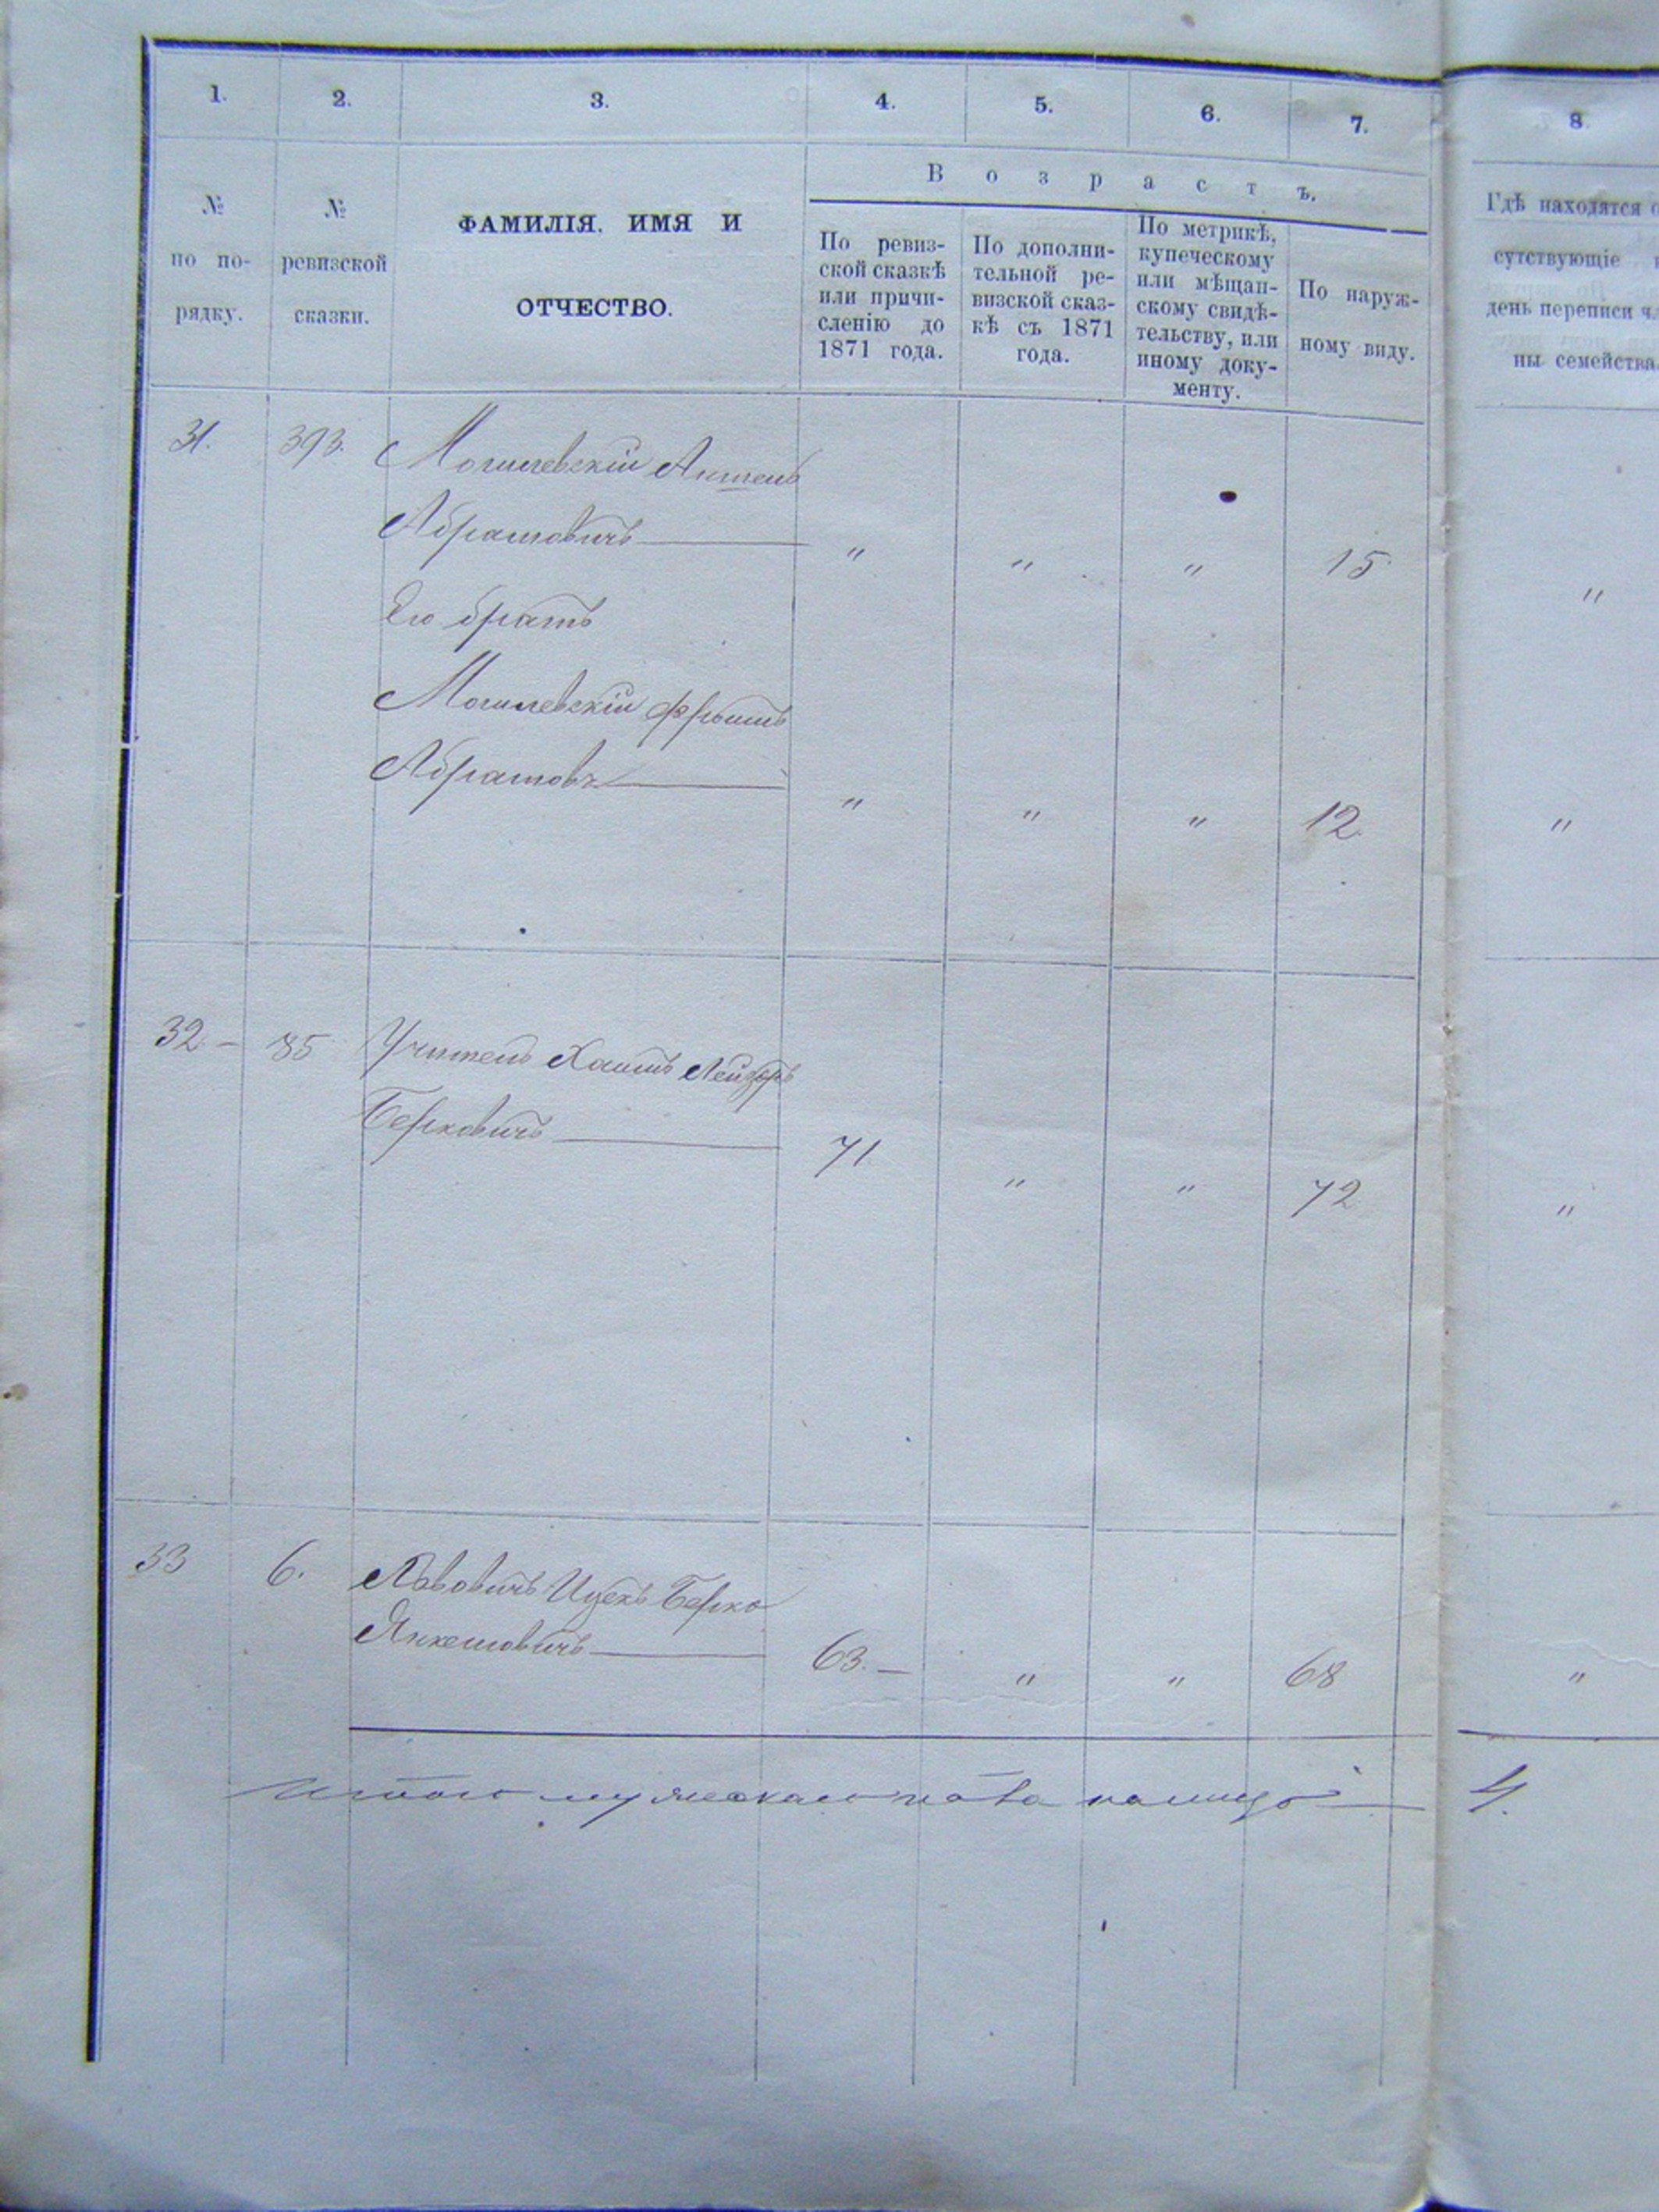 1. 2. 3. 4. 5. 6. 7. 8.
№ по по-рядку.
№ ревизской сказки.
ФАМИЛІЯ, ИМЯ И
ОТЧЕСТВО.
Возрастъ.
По ревиз-
ской сказкѣ
или причи-
сленію до
1871 года.
По дополни-
тельной ре-
визской сказ-
кѣ съ 1871
года.
По метрикѣ,
купеческому
или мѣщан-
скому свидѣ-
тельству, или
иному доку-
менту.
По наруж-
ному виду.
Гдѣ находятся
сутствующіе
день переписи
ны семейства
31. 393. Могилевскій
Абрамовичъ " " " 15 "
Его братъ
Могилевскій
Абрамовъ " " " 12 "
32 - 85 Учитель Хаимъ Лейзоръ
Берковичъ 71 " " 72 "
33 6. Львовичъ Ицекъ Берко
Янкелевичъ 63. - " " 68 "
Итого мужескаго пола налицо 4.